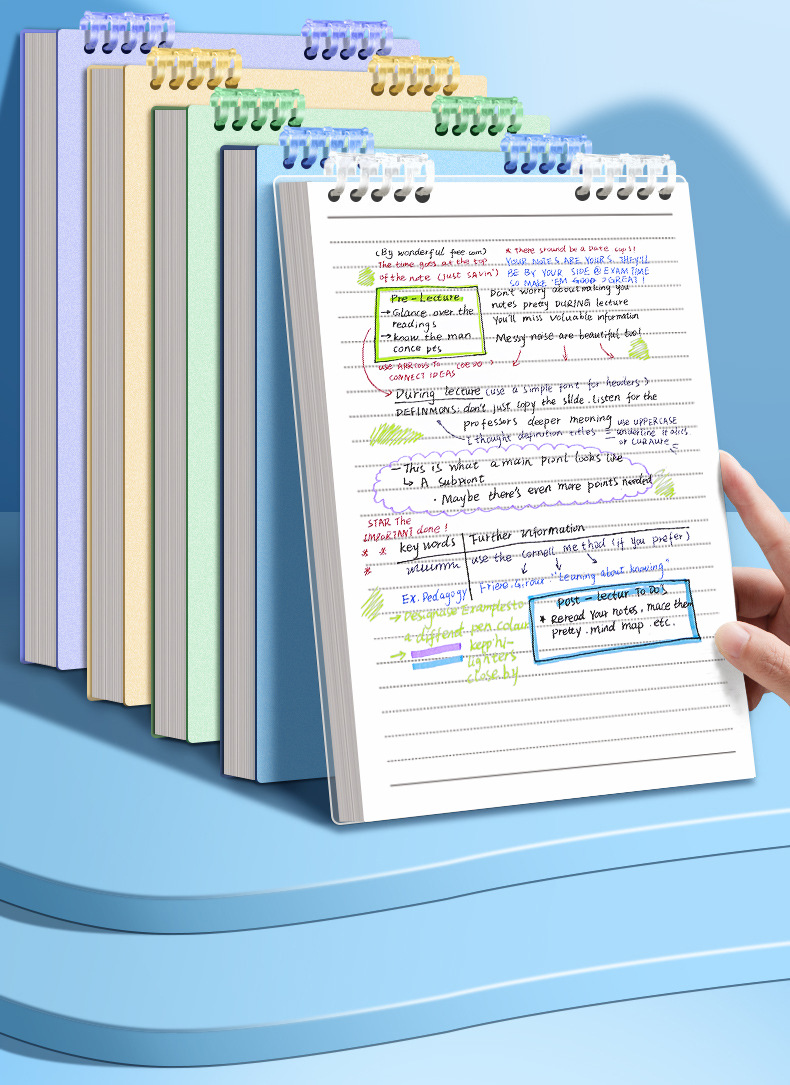 (By wonderful free com)
The time goes at the top
of the note (just sayin')
* There should be a Date
YOUR NOTES ARE YOURS. THEY'LL
BE BY YOUR SIDE @ EXAM TIME
SO MAKE 'EM GOOD GREAT!
Pre-Lecture
→Glance over the
readings
→know the man
conce pts
Don't worry about making you
notes pretty DURING lecture
You'll miss valuable information
Messy noise are beautiful too!
USE ARROWS TO
CONNECT IDEAS
During lecture (use a simple font for headers)
DEFINMONS: don't just copy the slide. listen for the
professors deeper meaning
thought definition titles =
use UPPERCASE
underline italics
or
- This is what a main piont looks like
↳ A subpiont
· Maybe there's even more points needed
STAR The
IMPORTANT done!
* *
*
key words
Further Information
use the cornell me thod (if you prefer)
Ex. Pedagogy
"Learning about knowing"
→ Examplesto
a differnt pen colour
→
kepp hi-
lighters
close by
post - lectur To Do's
* Reread Your notes, mace them
pretty. mind map etc.